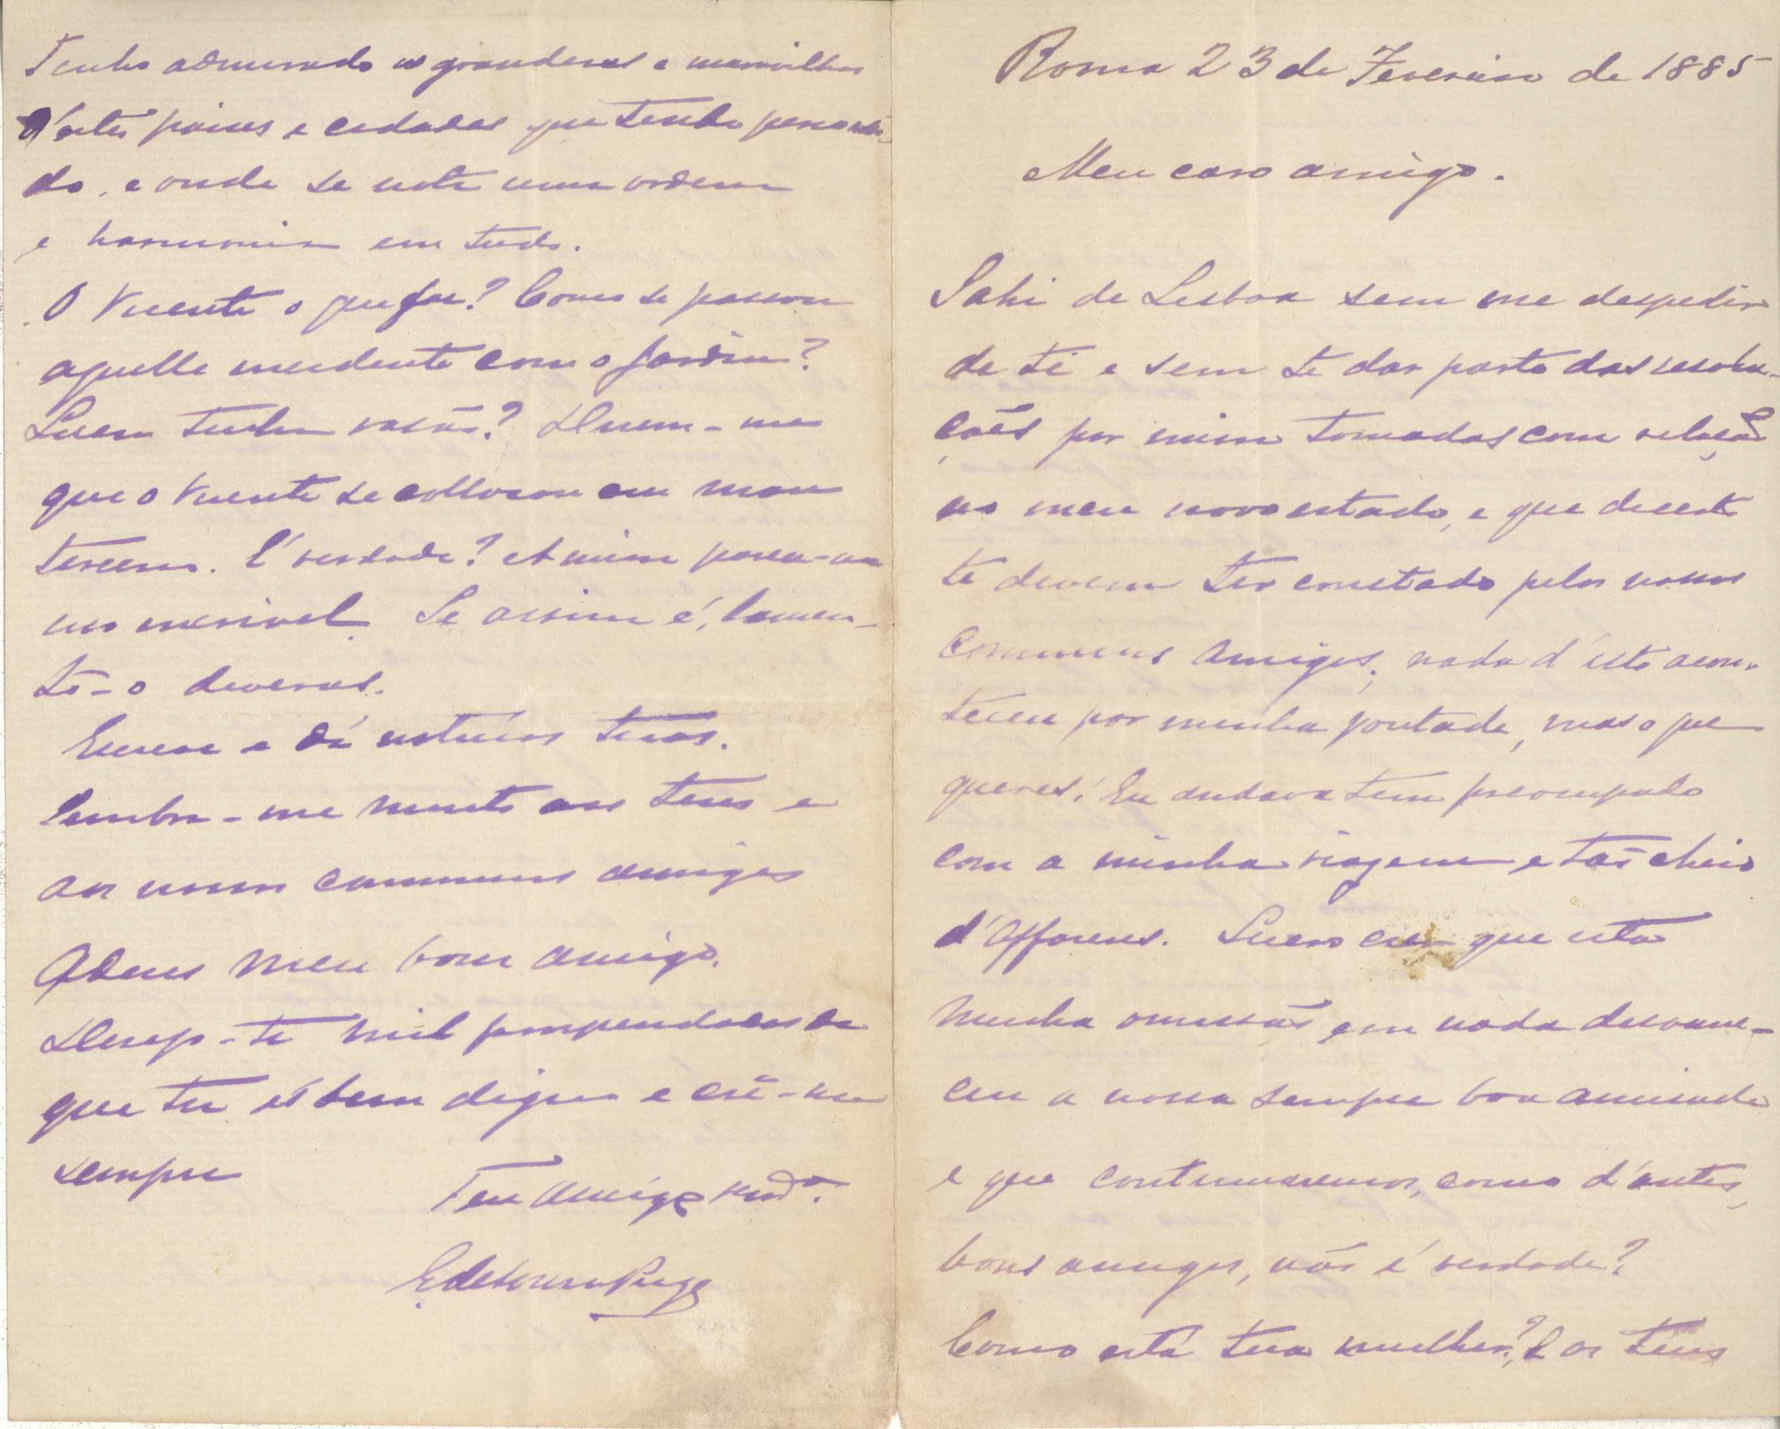 Roma 23 de Fevereiro de 1885
Meu caro amigo.
Sahi de Lisboa sem me despedir
de ti e sem te dar parte das resolu-
ções por mim tomadas com relação
ao meu novo estado, e que decerto
te devem ter constado pelos nossos
communs amigos; nada d'isto acon-
teceu por minha vontade, mas o que
queres! Eu andava tam preoccupado
com a minha viagem e tão cheio
d'affazeres. Quero crer que esta
minha omissão em nada desvane-
ceu a nossa sempre boa amisade
e que continuaremos, como d'antes,
bons amigos, não é verdade?
Como está tua mulher? E os teus
Tenho admirado as grandesas e maravilhas
d'estes paises e cidades que tenho percorri-
do, e onde se nota uma ordem
e harmonia em tudo.
O Vicente o que faz? Como se passou
aquelle incidente com o Jardim?
Quem tinha rasão? Dizem-me
que o Vicente se collocou em mau
terreno. É verdade? A mim parece-me
incrivel. Se assim é, lamen-
to-o deveras.
Escreve e dá noticias tuas.
Lembra-me muito aos teus e
aos nossos communs amigos
Adeus meu bom amigo.
Desejo-te mil prosperidades de
que tu és bem digno e crê-me
sempre
Teu amigo